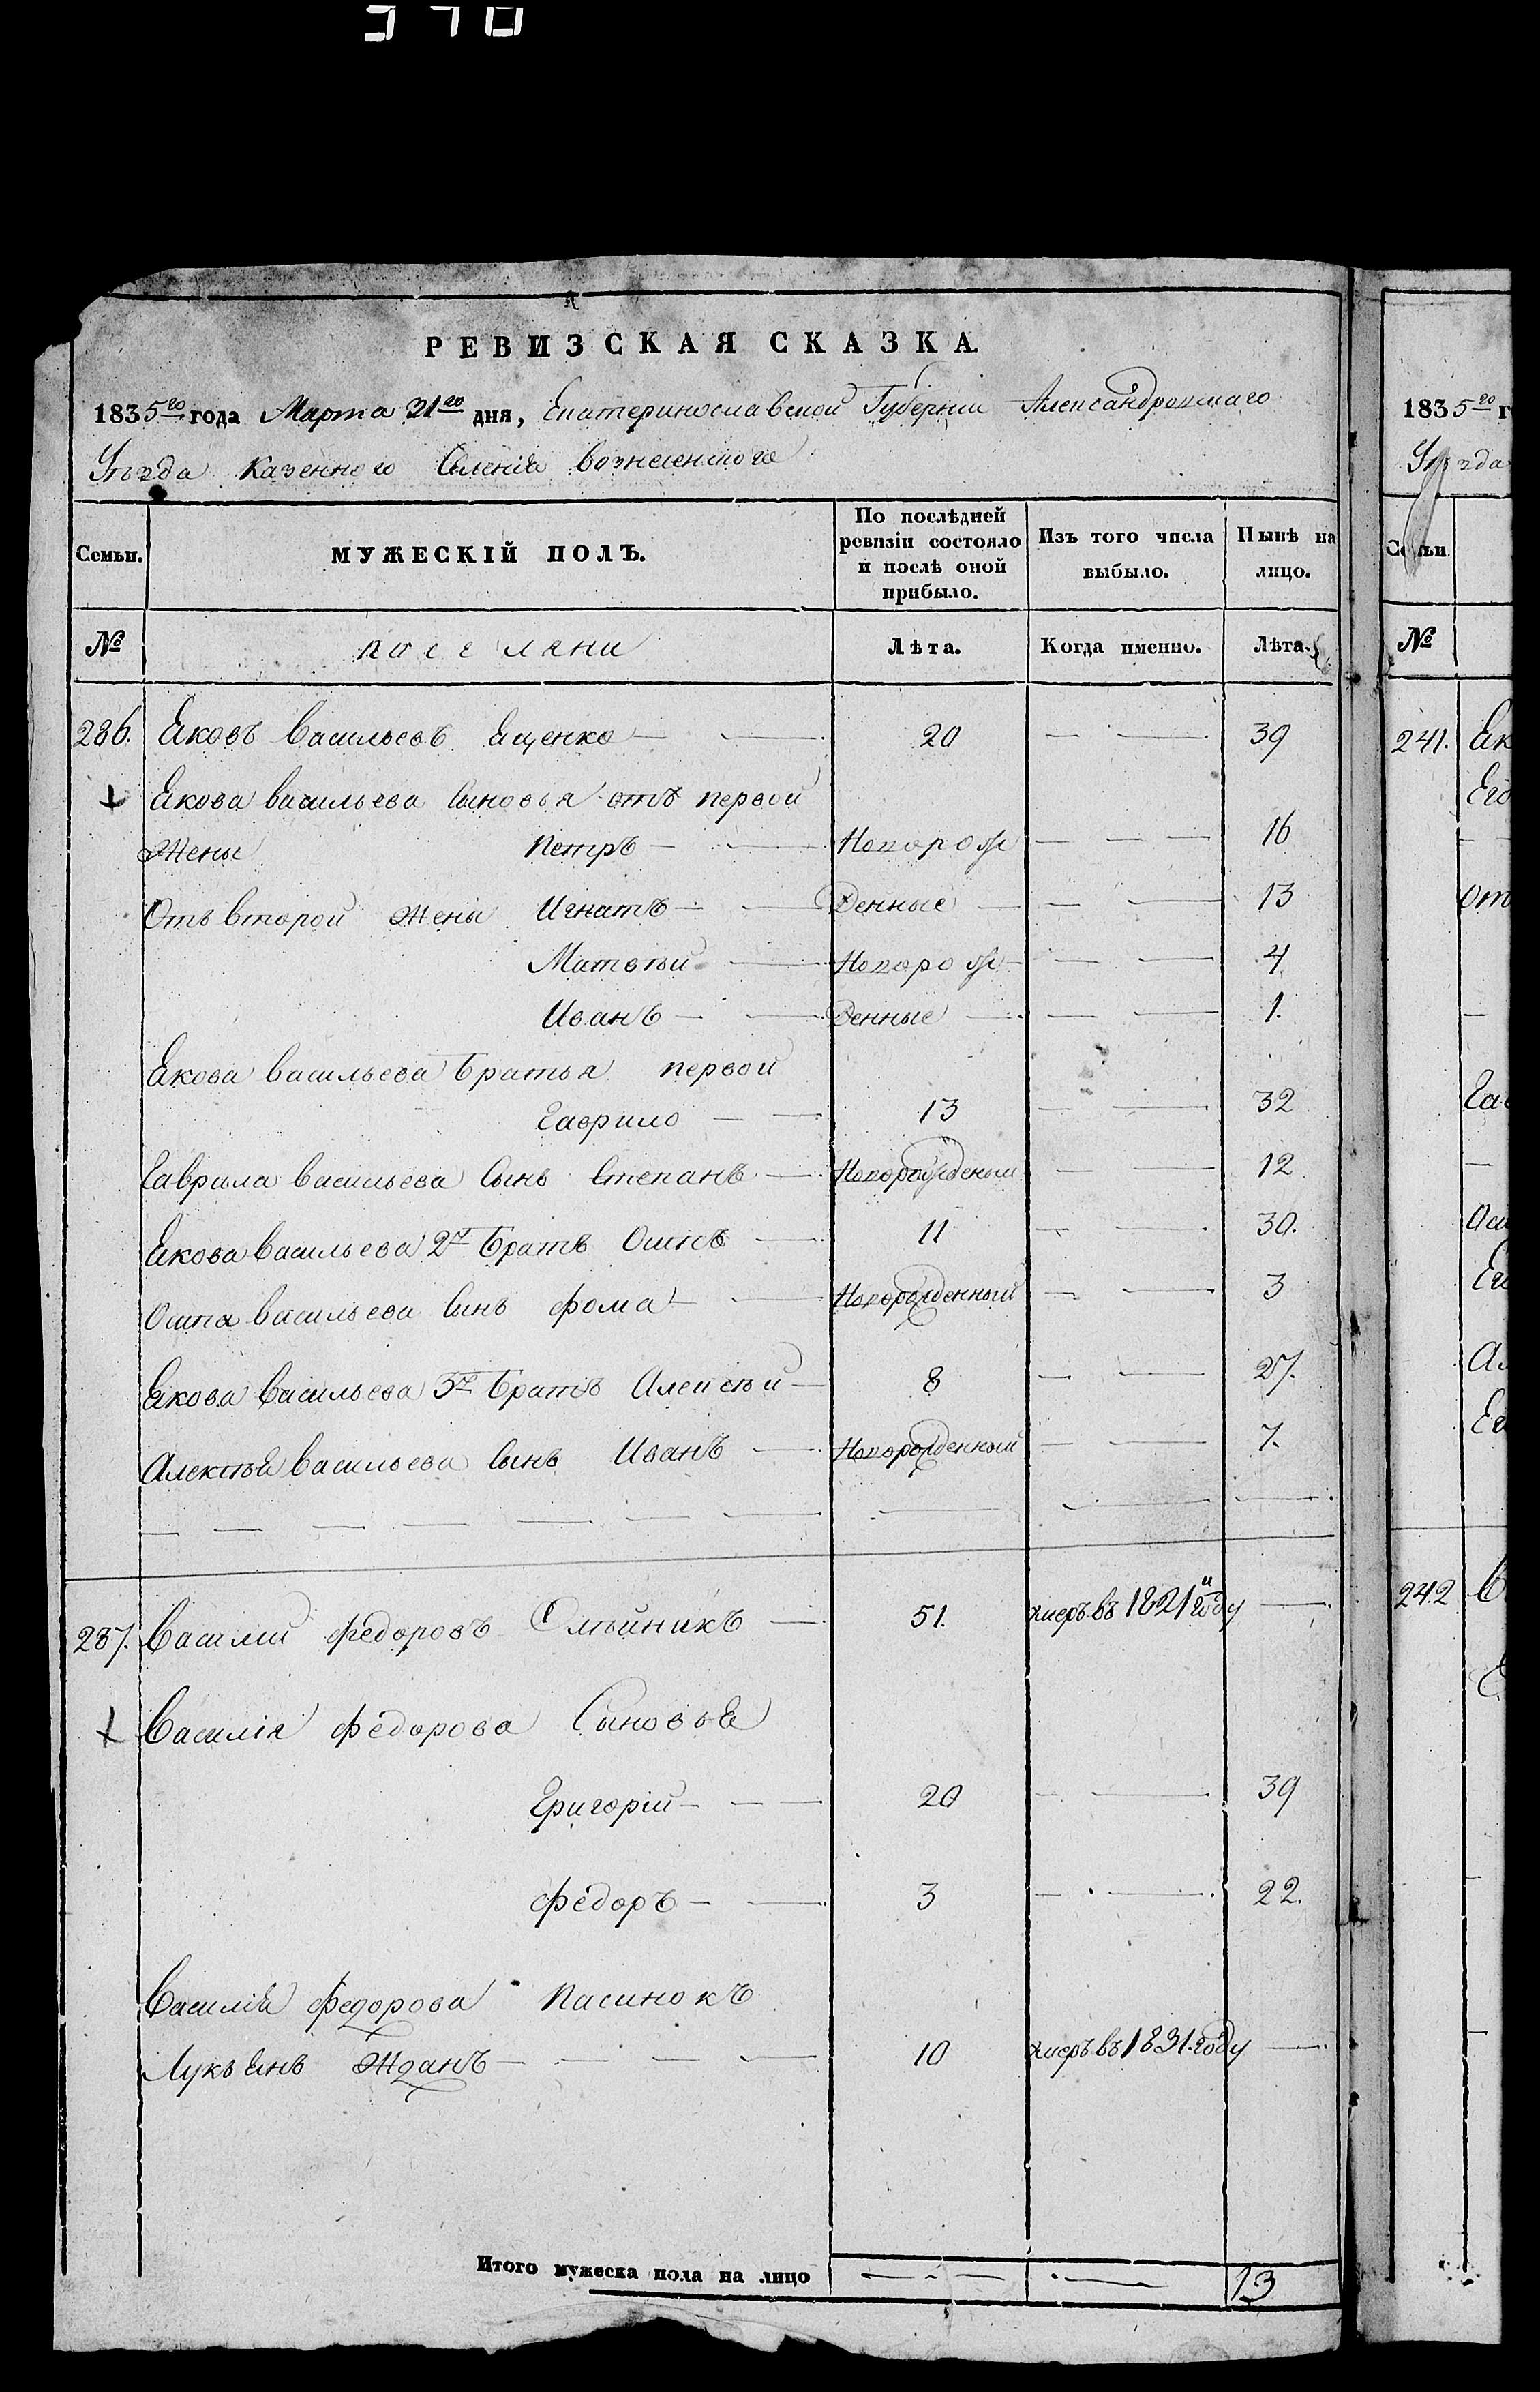 РЕВИЗСКАЯ СКАЗКА.
1835го года Марта 21го дня, Екатеринославской Губернии Александровскаго
Уѣзда Казенного Селения Вознесенского
Семьи. МУЖЕСКІЙ ПОЛЪ. По послѣдней ревизіи состояло и послѣ оной прибыло. Изъ того числа выбыло. Нынѣ на лицо.
№ поселяни Лѣта. Когда именно. Лѣта.
236. Яковъ Васильевъ Ященко 20 39
Якова Васильева Сыновья отъ первой
Жены Петръ Новорож 16
Отъ второй Жены Игнатъ Денные 13
Матвѣй Новорож 4
Иванъ Денные 1.
Якова Васильева Братья первой
Гаврило 13 32
Гаврила Васильева Сынъ Степанъ Новорожденый 12
Якова Васильева 2й Братъ Осипъ 11 30.
Осипа Васильева Сынъ Фома Новорожденный 3
Якова Васильева 3й Братъ Алексѣй 8 27.
Алексѣя Васильева Сынъ Иванъ Новорожденный 7.
237. Василий Федоровъ Олѣйникъ 51. умеръ въ 1821м году
Василія Федорова Сыновья
Григорій 20 39
Федоръ 3 22.
Василія Федорова пасинокъ
Лукьянъ Жданъ 10 умеръ въ 1831. году
Итого мужеска пола на лицо 13
1835го г
Уѣзда
Семьи.
№
241. Як
Его
от
Гав
Оси
Ег
Ал
242